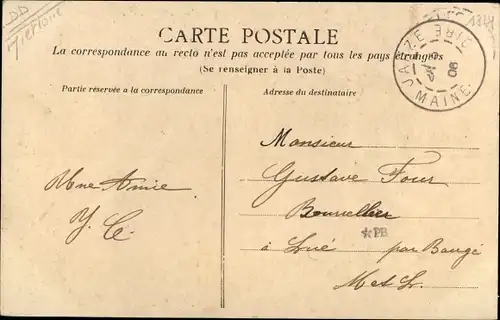 DD
CARTE POSTALE
La correspondance au recto n'est pas acceptée par tous les pays étrangers
(Se renseigner à la Poste)
Partie réservée a la correspondance
Adresse du destinataire
MAINE
08
Monsieur
Gustave Four
Bourrelier
à Lué par Baugé
M et L.
Une Amie
Y. C.
*PB